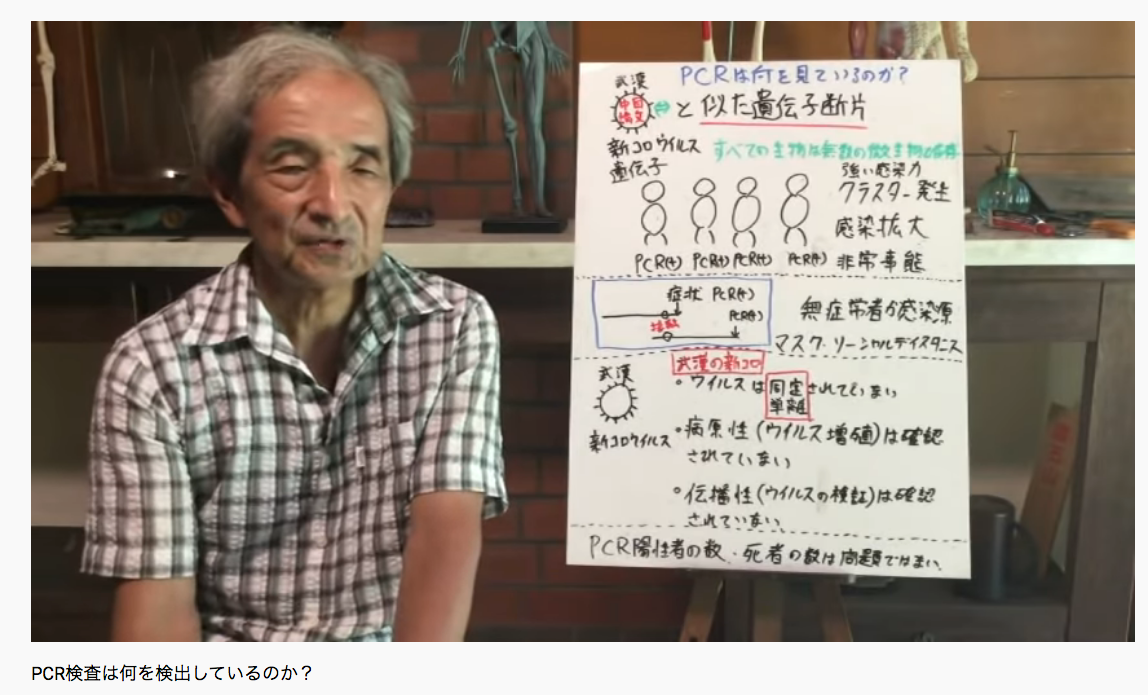 PCRは何を見ているのか？
武漢
中国
論文
と似た遺伝子断片
新コロウイルス
遺伝子
すべての生物は無数の微生物と共存
強い感染力
クラスター発生
感染拡大
非常事態
PCR(+) PCR(+) PCR(+) PCR(+)
症状 PCR(+)
PCR(+)
無症状者が感染源
マスク・ソーシャルディスタンス
武漢の新コロ
武漢
新コロウイルス
・ウイルスは同定
単離
されていない
・病原性(ウイルス増殖)は確認
されていない
・伝播性(ウイルスの検証)は確認
されていない
PCR陽性者の数・死者の数は問題ではない、
PCR検査は何を検出しているのか？